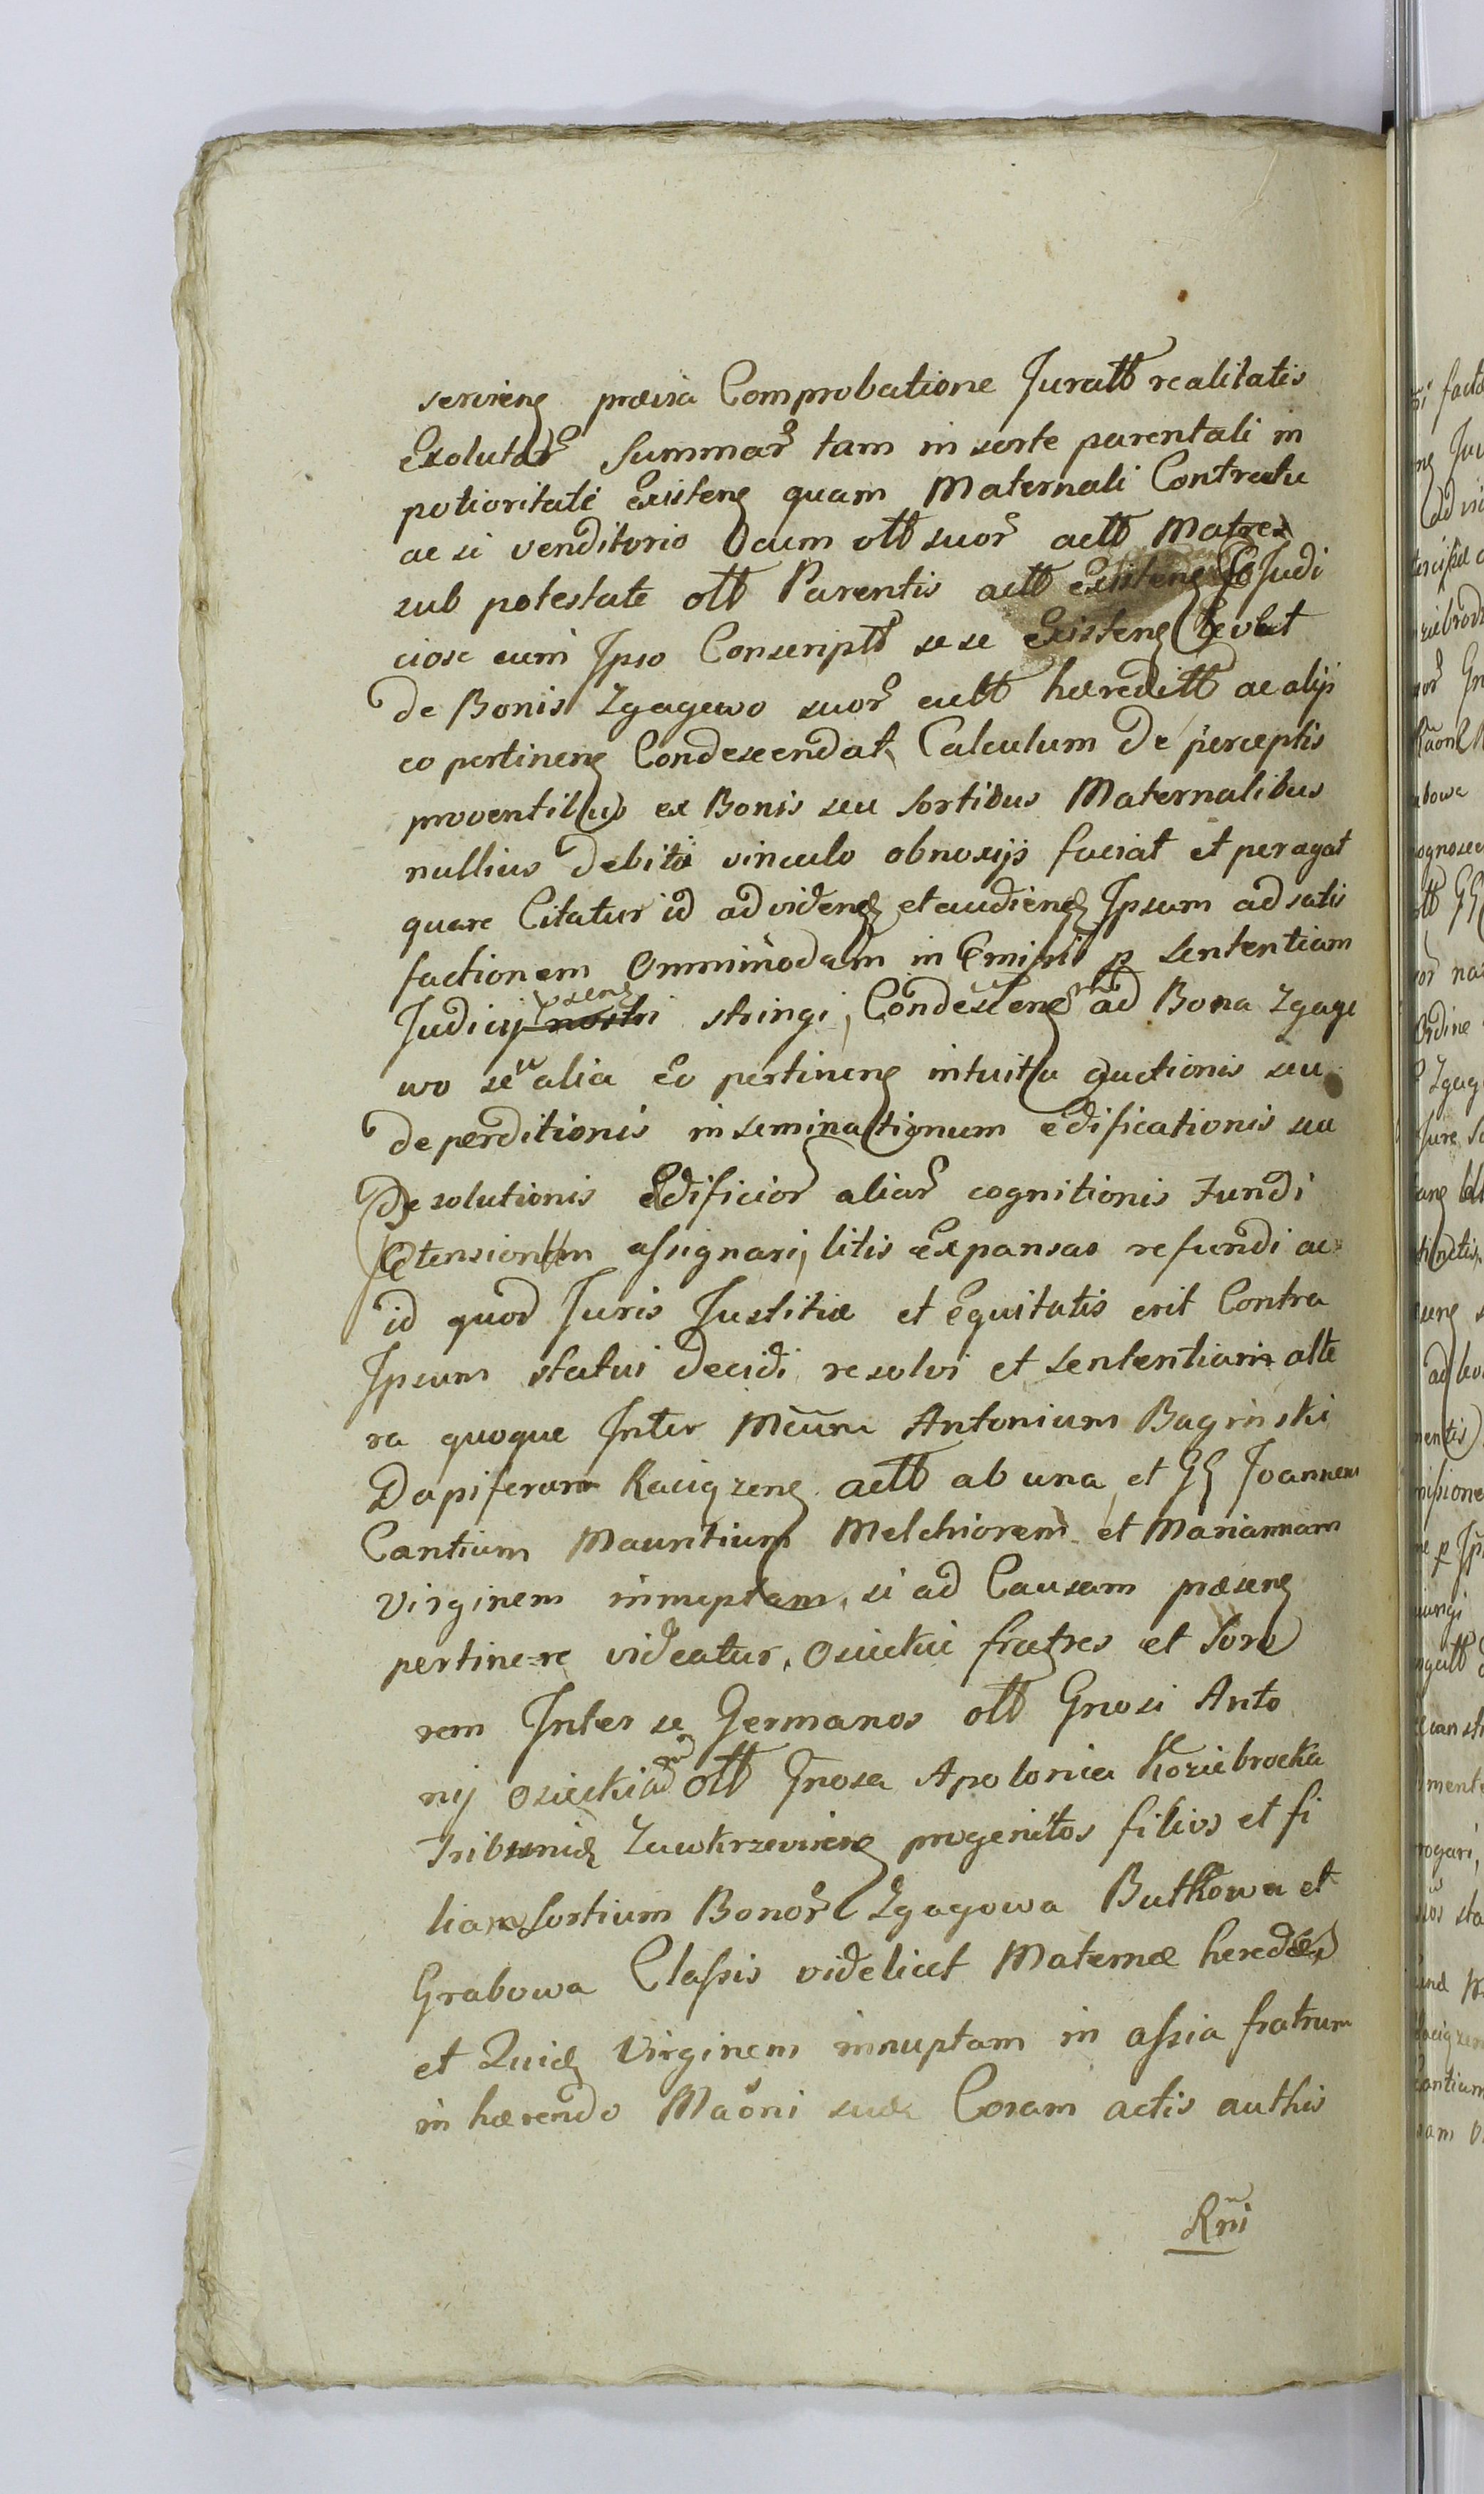 servieng prævia Comprobatione Juratt realitatis
Exolutar Summar tam in sorte parentali in
potioritate Existeng quam Maternali Contractu
ac si venditorio cum ott suor actt Matre
sub potestate ott Parentis actt existeng Judi
ciose cum Ipso Conscriptt sese Existeng
de Bonis Zgagowo suor actt hæreditt ac alijs
eo pertineng Condescendat Calculum de perceptis
proventibus ex Bonis seu Sortibus Maternalibus
nullius debiti vinculo obnoxijs faciat et peragat
quare Citatur id ad videng et audieng Ipsum ad satis
factionem Omnimodam in p Sententiam
Judicij pseng stringi, Condesceng ad Bona Zgago
wo seu alia Eo pertineng intuitu auctionis seu
deperditionis inseminationum edificationis seu
Desolutionis Edificior aliar cognitionis Fundi
ptensionem assignari, litis Expansas refundi ac
id quod Juris Justitiæ et Equitatis erit Contra
Ipsum statui decidi resolvi et Sententiam alte
ra quoque Inter Mcum Antonium Baginski
Dapiferum Raciązeng actt ab una et GG Joannem
Cantium Mauritium Melchiorem et Mariannam
Virginem innuptam, si ad Causam præseng
pertinere videatur, Osieckie fratres et Soro
rem Inter se Germanos ott Gnosi Anto
nij Osiecki ad ott Gnosa Apolonia Koziebrocka
Tribunid Zawkrzevieng progenitos filios et fi
liam Sortium Bonor Zgagowa Butkowa et
Grabowa Classis videlicet Maternæ heredes
et Quid Virginem innuptam in assia fratrum
inhærendo Maoni suæ Coram actis authis
Rni